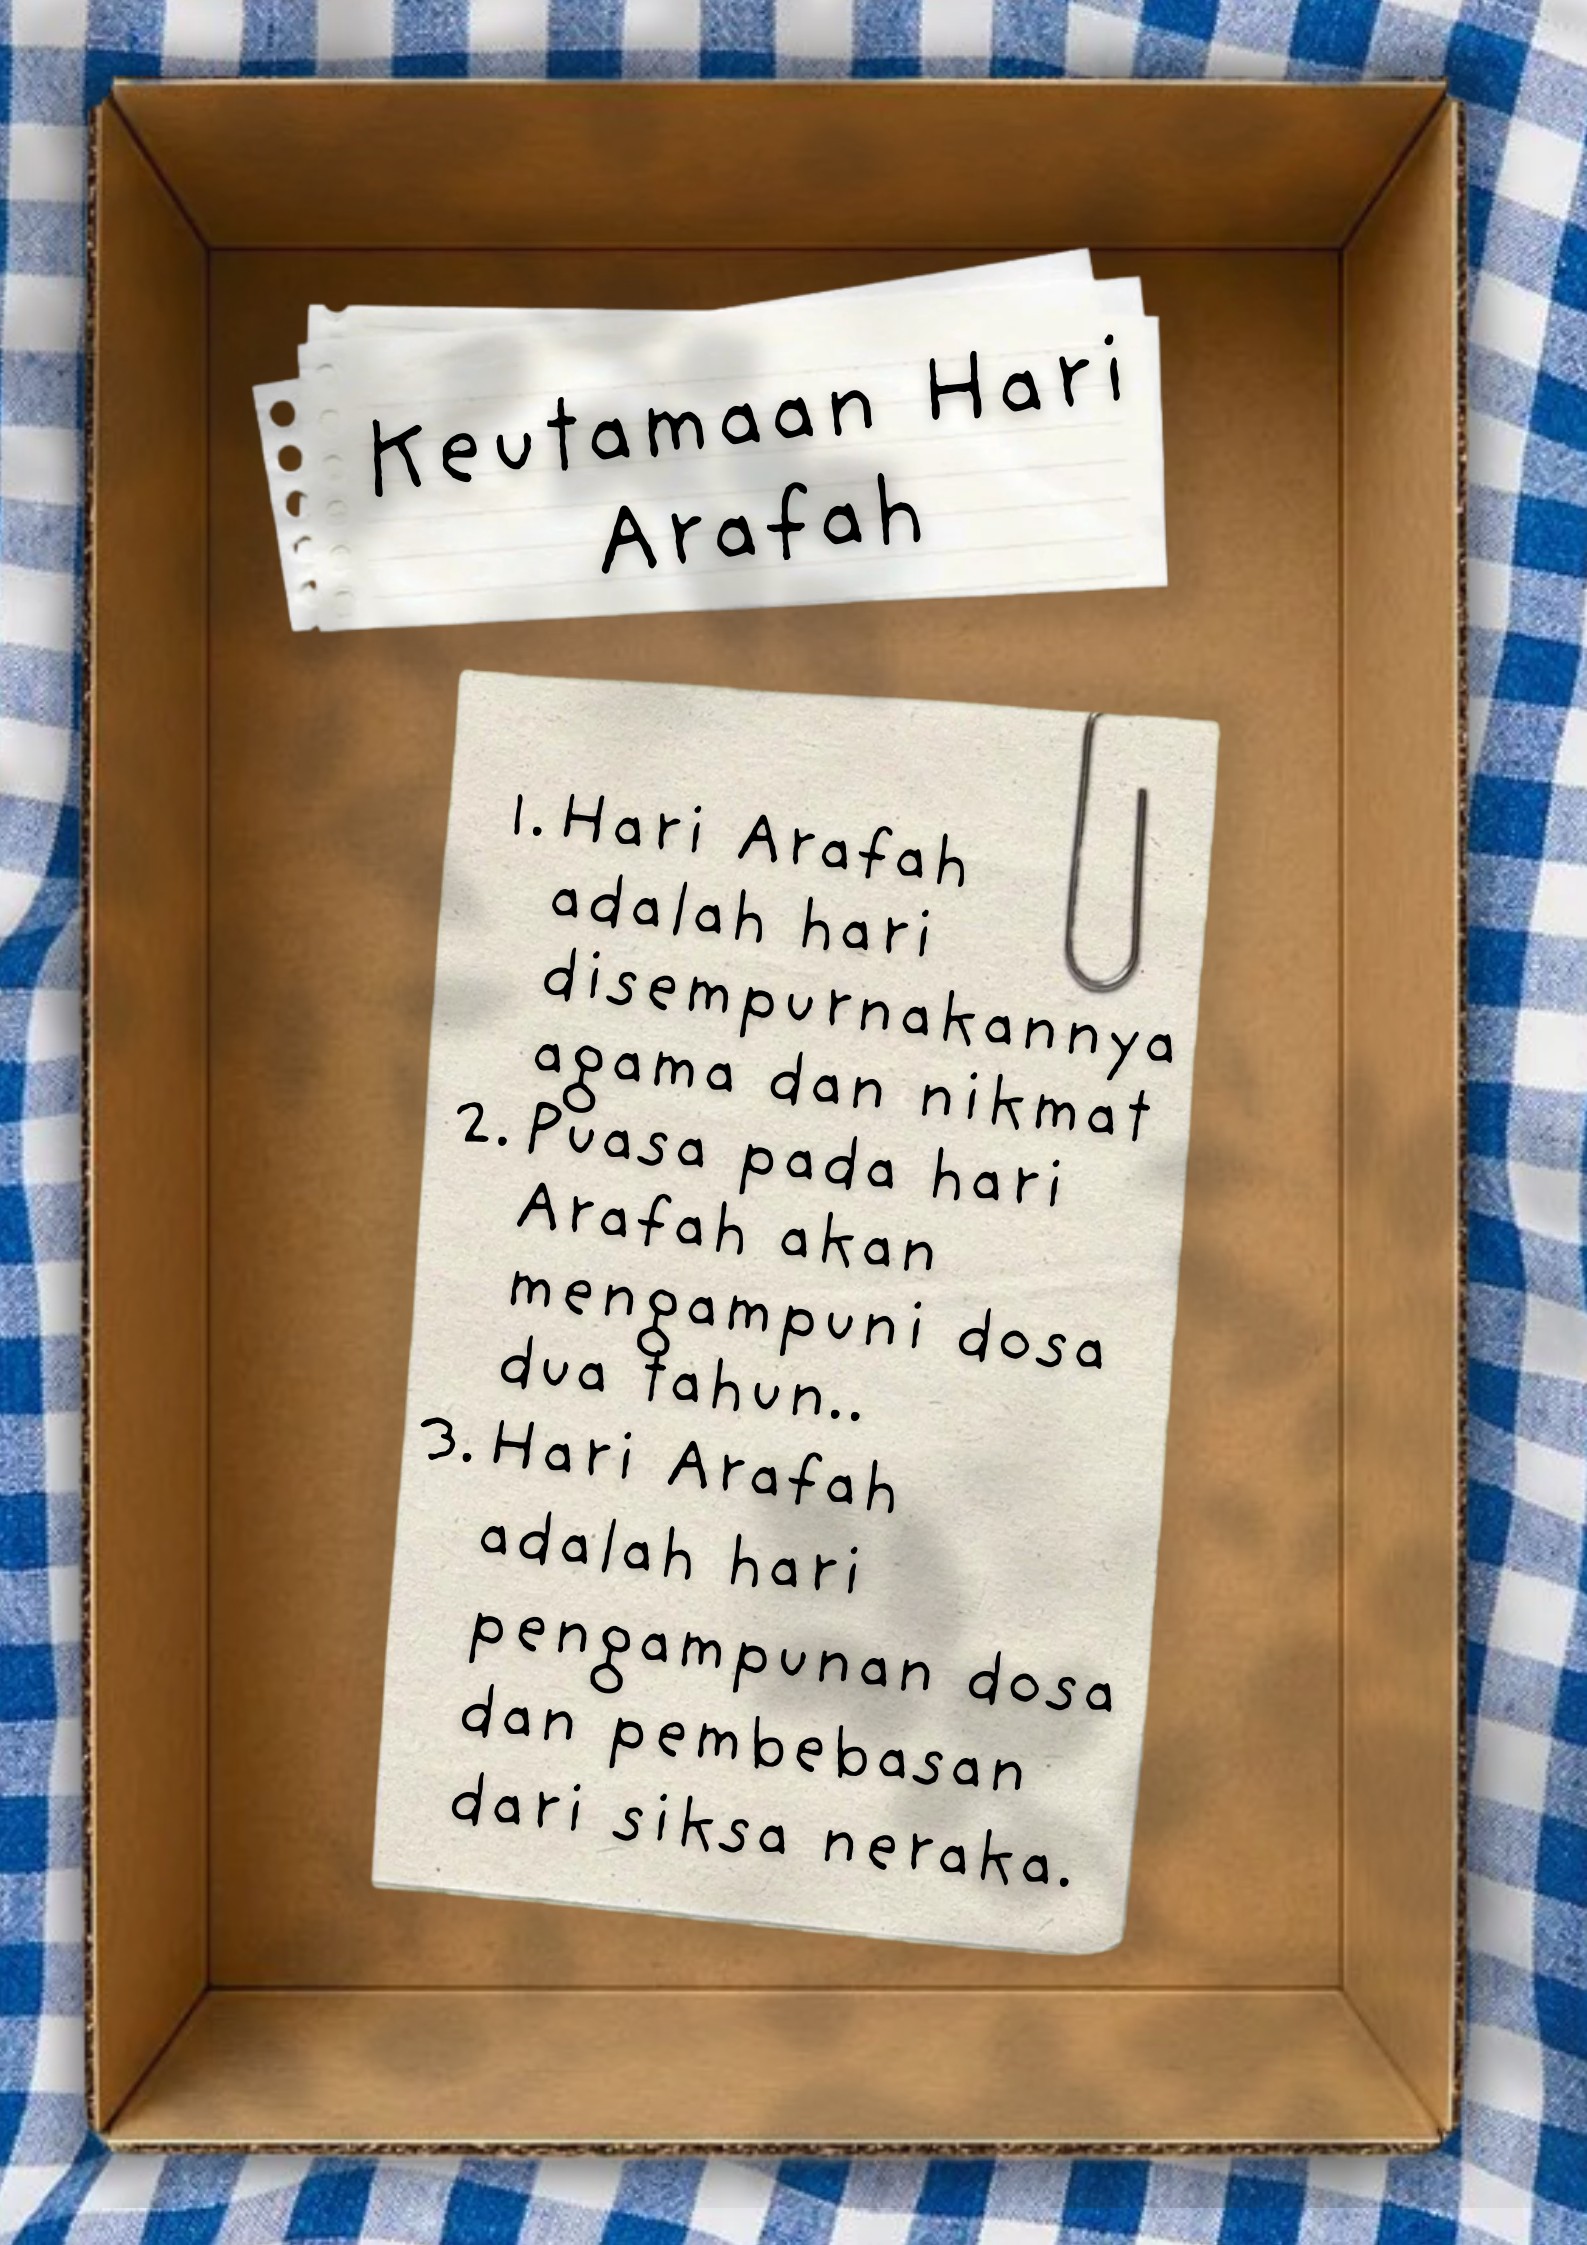 Keutamaan Hari
Arafah
1. Hari Arafah
adalah hari
disempurnakannya
agama dan nikmat
2. Puasa pada hari
Arafah akan
mengampuni dosa
dua tahun..
3. Hari Arafah
adalah hari
pengampunan dosa
dan pembebasan
dari siksa neraka.